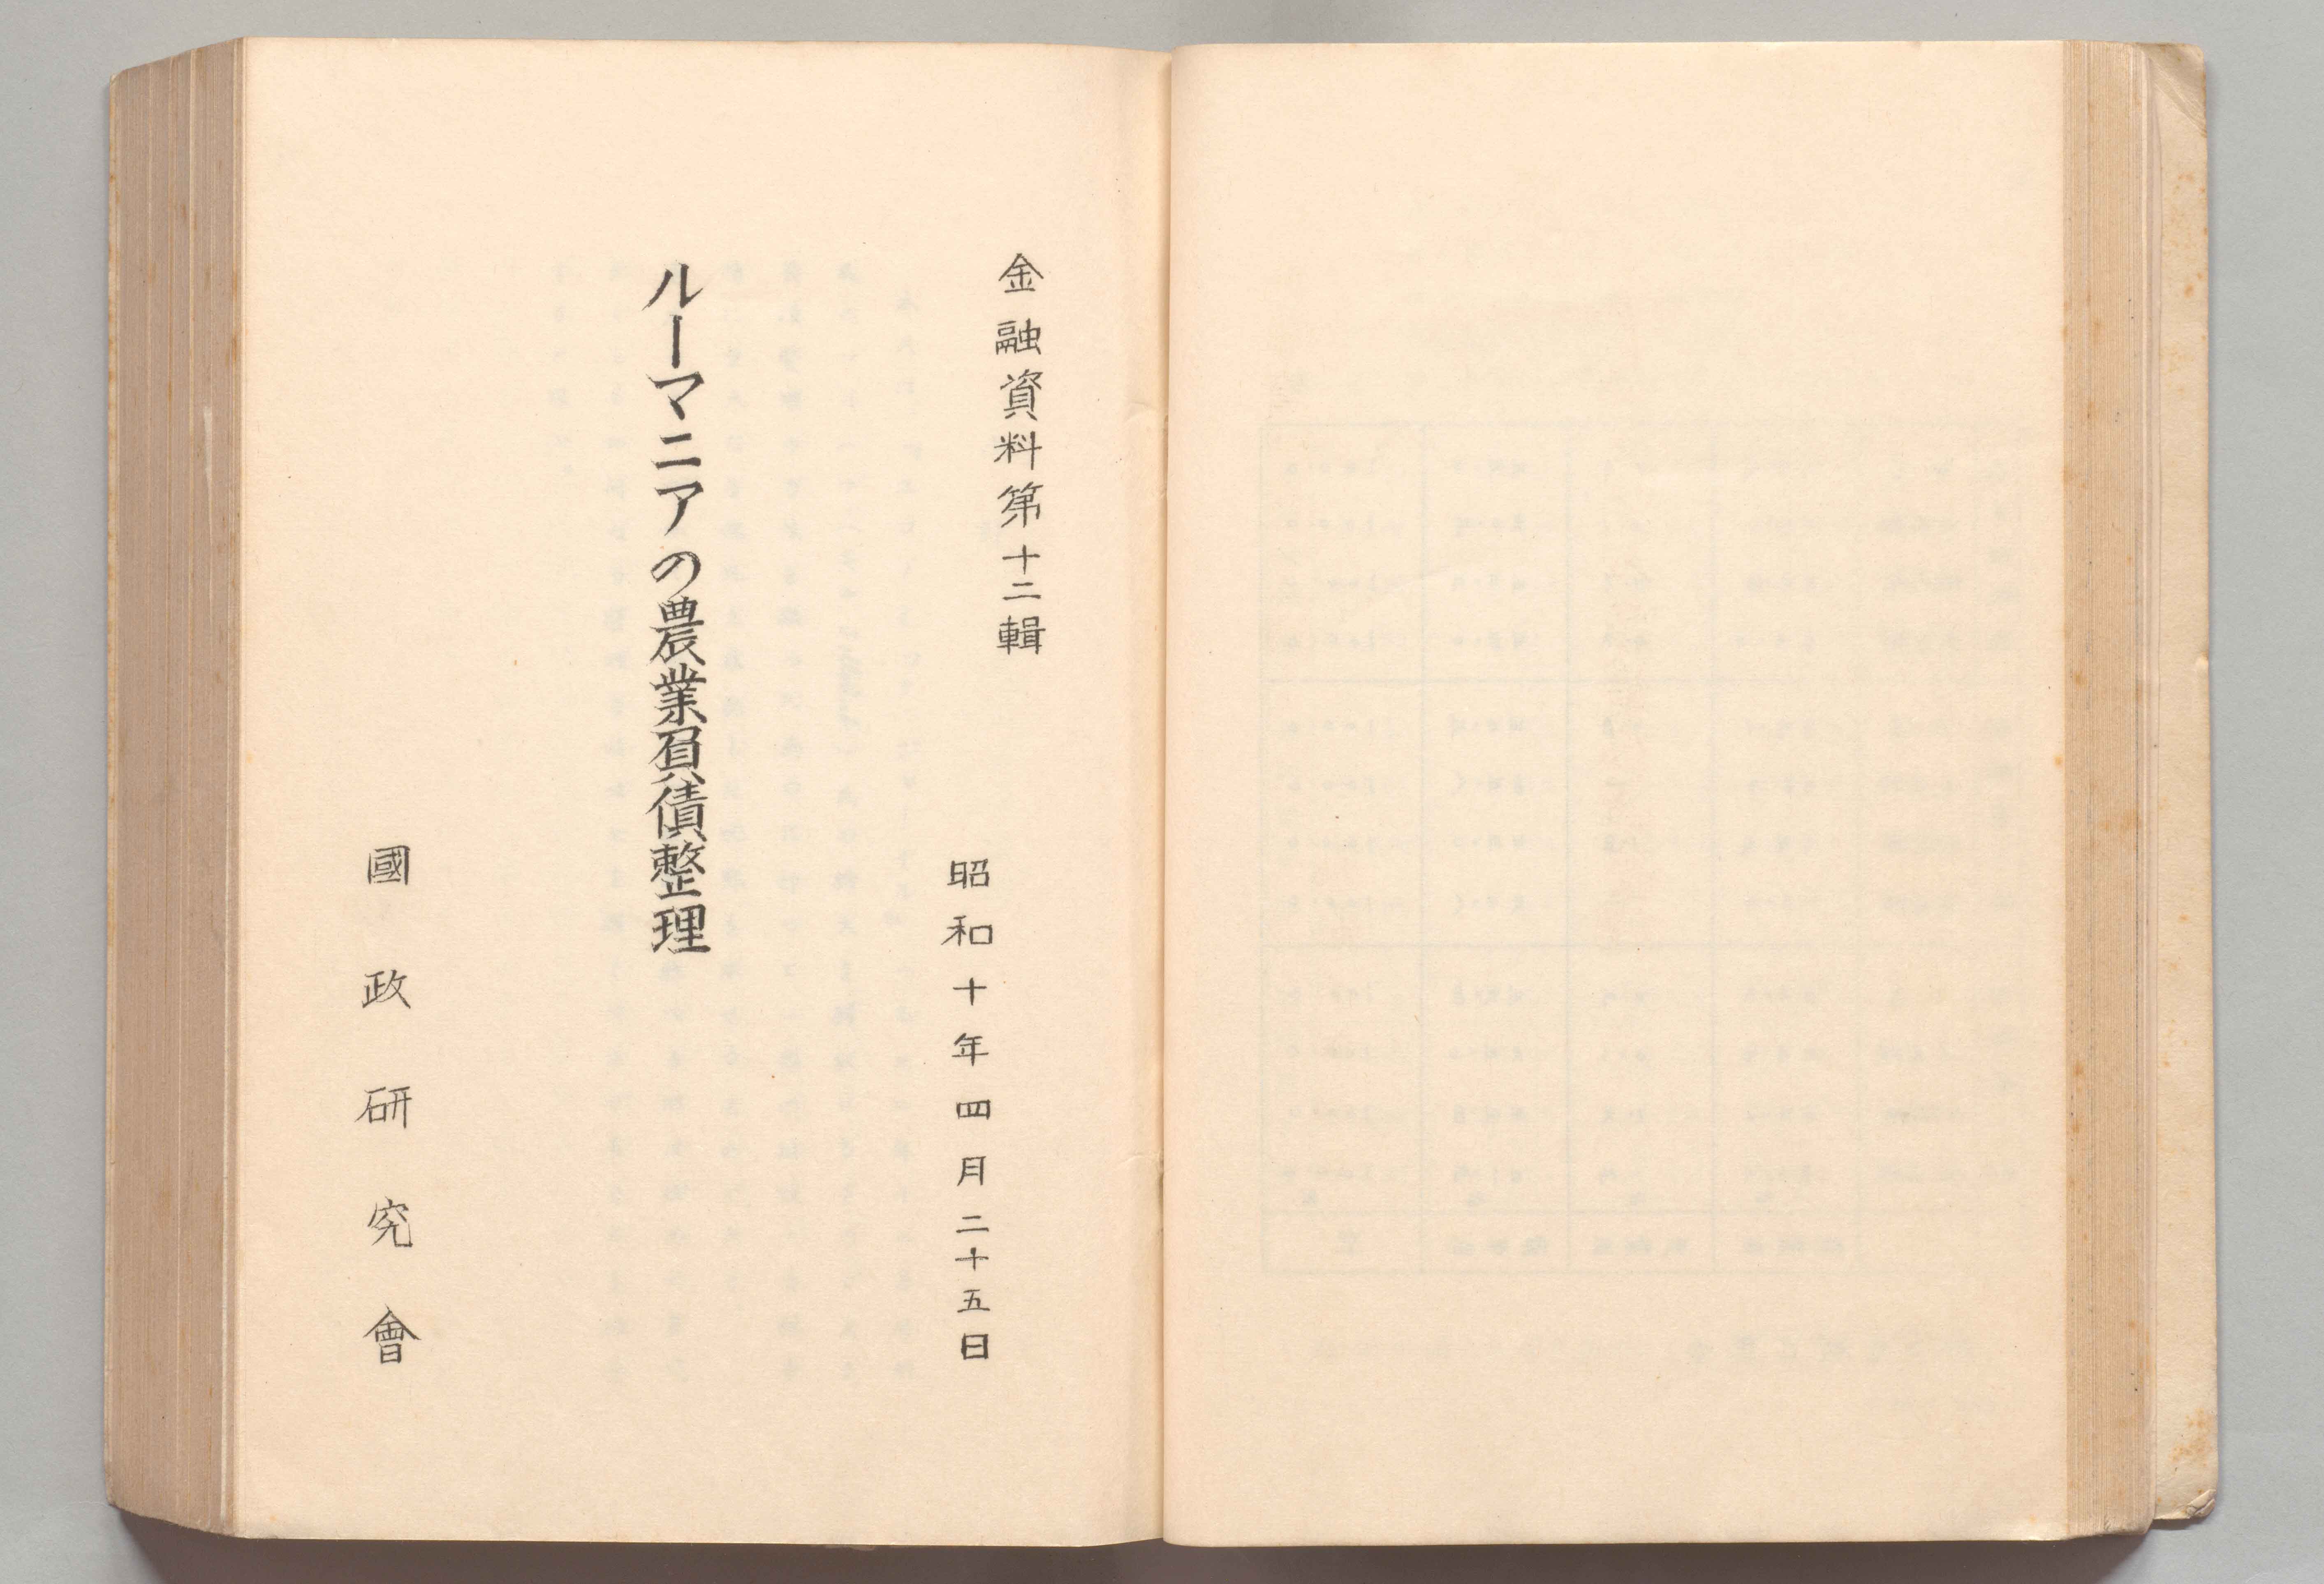 金融資料第十二輯
昭和十年四月二十五日
ルーマニアの農業負債整理
國政研究會